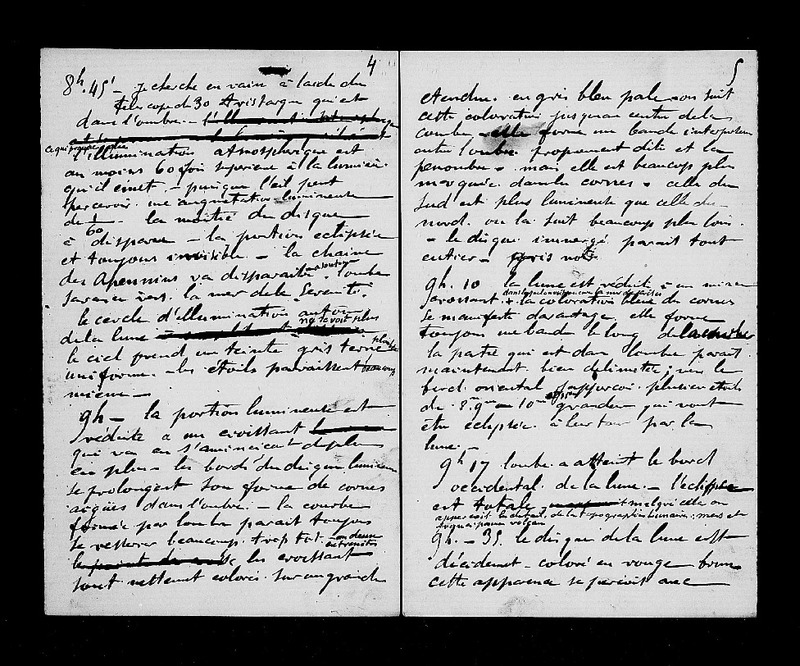 4
8h. 45' - je cherche en vain à l'aide du
telescope de 30 Aristarque qui est
dans l'ombre -
ce qui prouve que
l'illumination atmospherique est
au moins 60 fois superieure à la lumiere
qu'il emet - puisque l'œil peut
percevoir une augmentation lumineuse
de 1/60 - la moitié du disque
a disparu - la portion eclipsée
est toujours invisible - la chaine
des Apennins va disparaitre l'ombre
s'avance vers la mer de la Serenité.
le cercle d'illumination autour
de la lune ne se voit plus
le ciel prend une teinte gris terne plus
uniforme - les étoiles paraissent beaucoup
mieux -
9h - la portion lumineuse est
réduite à un croissant
qui va en s'amincissant de plus
en plus - les bords du disque lumineux
se prolongent sous forme de cornes
aigües dans l'ombre - la courbe
formée par l'ombre parait toujours
se resserrer beaucoup trop tot - aux deux
extremités
les croissant
sont nettement colorés sur une grande
5
etendue en gris bleu pale - on suit
cette coloration jusqu'au centre de la
courbe - elle forme une bande
entre l'ombre proprement dite et la
penombre - mais elle est beaucoup plus
marquée dans les cornes - celle du
Sud est plus lumineuse que celle du
nord. on la suit beaucoup plus loin.
- le disque immergé parait tout
entier - gris noir
9h. 10 la lune est réduite à un mince
croissant - la coloration bleue des cornes
se manifeste davantage elle forme
toujours une bande le long de la courbe
la partie qui est dans l'ombre parait
maintenant bien delimitée; vers le
bord oriental j'apperçoi plusieurs étoiles
de 8. 9me - 10me grandeur qui vont
être eclipsées à leur tour par la
lune.
9h 17 l'ombre a atteint le bord
occidental de la lune - l'éclipse
est totale malgré cela on
apperçoit le detail de la topographie lunaire; mers et
9h. - 35. le disque de la lune est
décidement coloré en rouge brun
cette apparence se perçoit avec